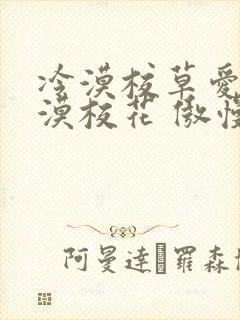 冷漠校草愛
漠校花 傲慢
阿曼達 羅森